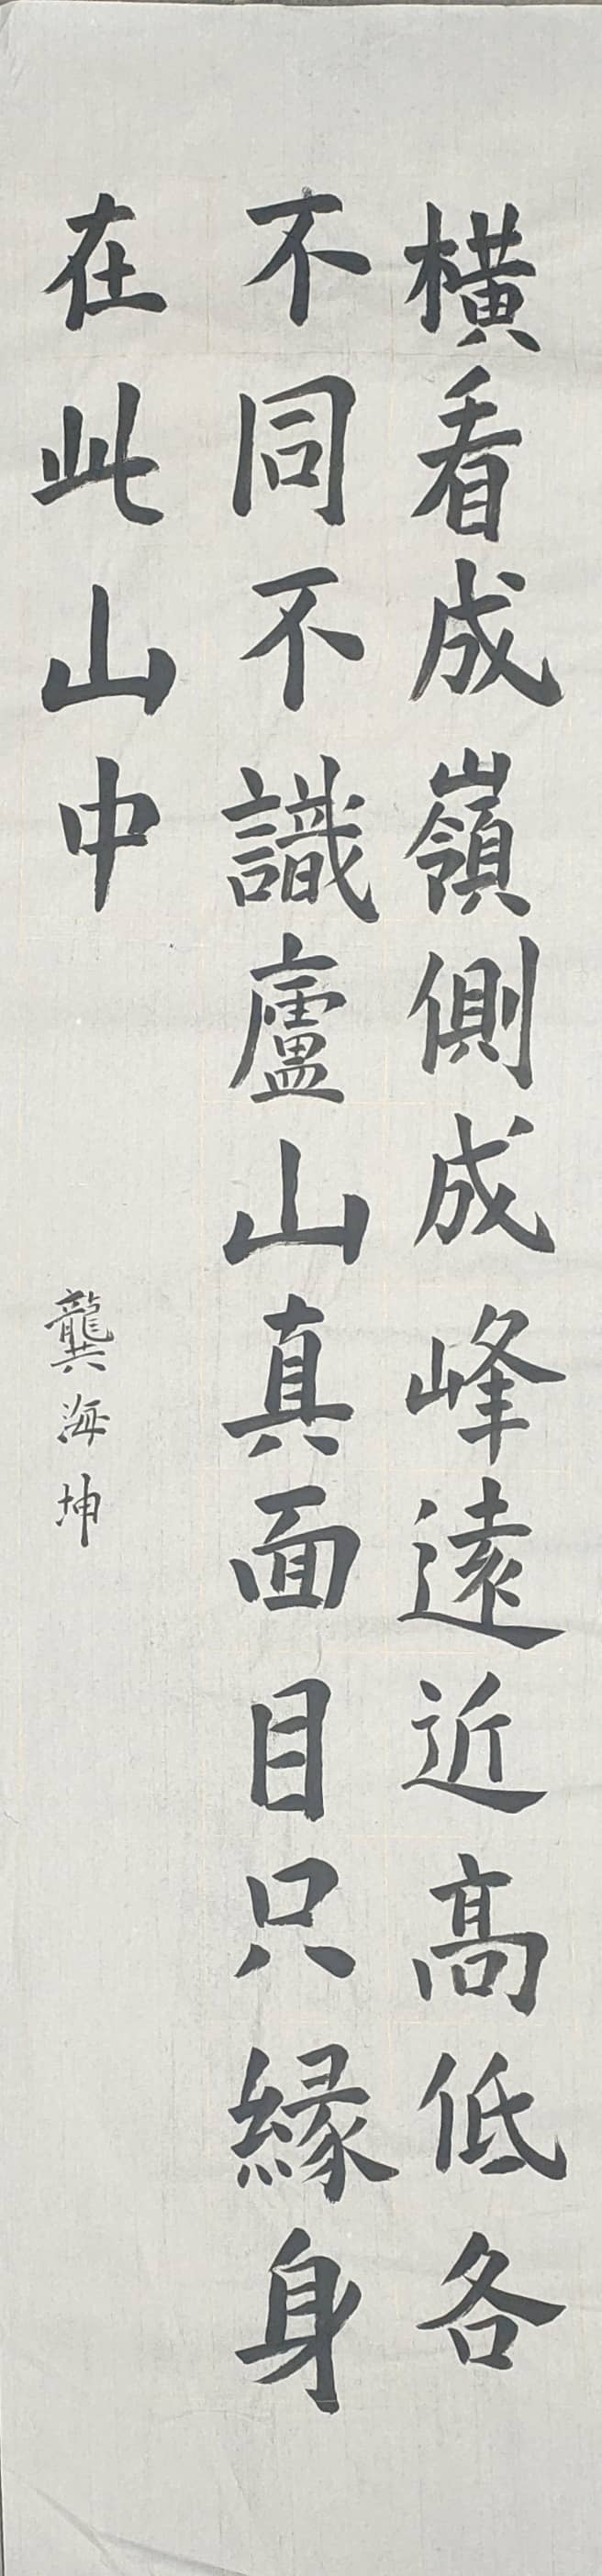 橫看成嶺側成峰遠近高低各
不同不識廬山真面目只緣身
在此山中
龔海坤